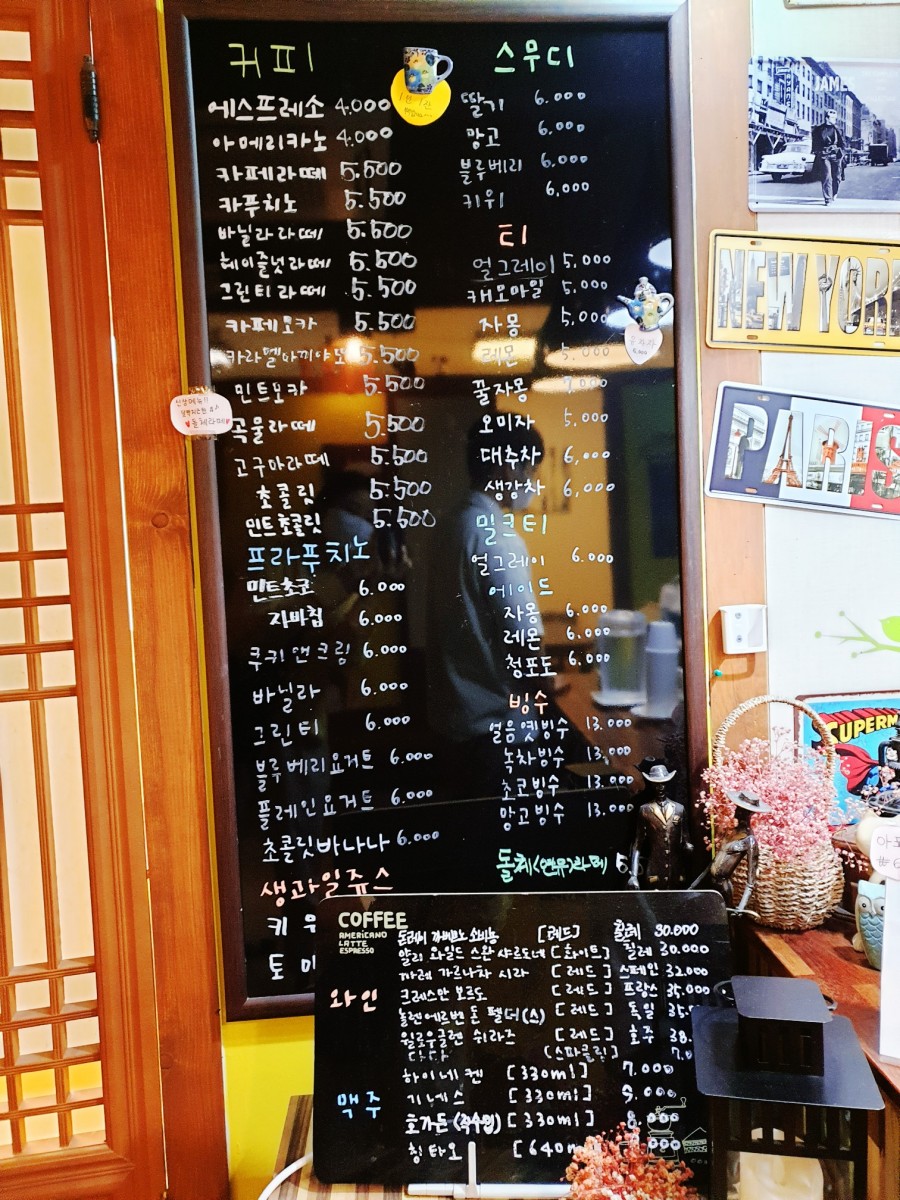 커피
에스프레소 4.000
아메리카노 4.000
카페라떼 5.500
카푸치노 5.500
바닐라라떼 5.500
헤이즐넛라떼 5.500
그린티라떼 5.500
카페모카 5.500
카라멜마끼야또 5.500
민트모카 5.500
곡물라떼 5.500
고구마라떼 5.500
초콜릿 5.500
민트초콜릿 5.500
프라푸치노
민트초코 6.000
자바칩 6.000
쿠키앤크림 6.000
바닐라 6.000
그린티 6.000
블루베리요거트 6.000
플레인요거트 6.000
초콜릿바나나 6.000
생과일쥬스
키
토
신상메뉴!!
돌체라떼
스무디
딸기 6.000
망고 6,000
블루베리 6.000
키위 6,000
티
얼그레이 5,000
캐모마일 5,000
자몽 5,000
레몬 5.000
꿀자몽
오미자 5,000
대추차 6,000
생강차 6,000
밀크티
얼그레이 6.000
에이드
자몽 6.000
레몬 6.000
청포도 6,000
빙수
얼음옛빙수 13.000
녹차빙수 13,000
초코빙수 13.000
망고빙수 13.000
돌체(연유)라떼
COFFEE
AMERICANO
LATTE
ESPRESSO
와인
[레드] 칠레 30.000
[화이트] 칠레 30.000
까레 가르나차 시라 [레드] 스페인 32.000
크레스만 보르도 [레드] 프랑스 35.000
[레드] 독일
윌로우글렌 쉬라즈 [레드] 호주
[스파클링]
맥주
하이네켄 [330ml] 7.000
기네스 [330ml] 9.000
호가든 [330ml] 8.000
칭타오
NEW YORK
PARIS
SUPERM